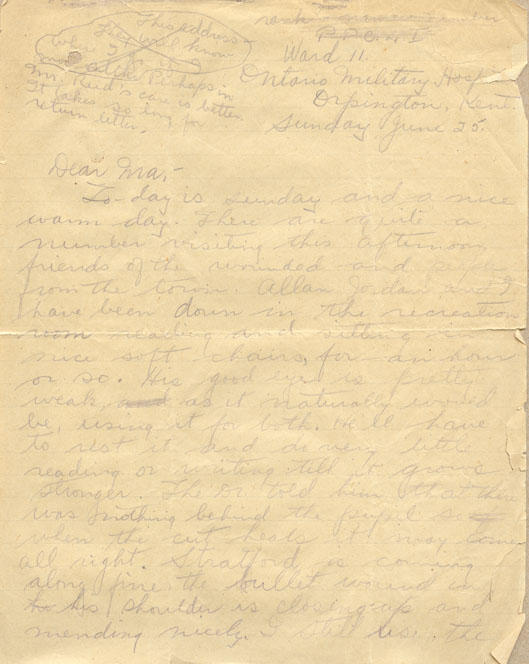 This address
They will know
where I
Perhaps in
Mr. Reid's care is better.
It takes so long for
return letter.
rank number
P.P.C.L.I
Ward 11.
Ontario Military Hosp
Orpington, Kent.
Sunday June 25.
Dear Ma,-
To-day is sunday and a nice
warm day. There are quite a
number visiting this afternoon
friends of the wounded and people
from the town. Allan Jordan and I
have been down in the recreation
room reading and sitting in
nice soft chairs, for an hour
or so. His good eye is pretty
weak, and as it naturally would
be, using it for both. He'll have
to rest it and do very little
reading or writing till it grows
stronger. The Dr told him that there
was nothing behind the pupil so
when the cut heals it may come
all right. Stratford is coming
along fine, the bullet wound in
his shoulder is closing up and
mending nicely. I still use the